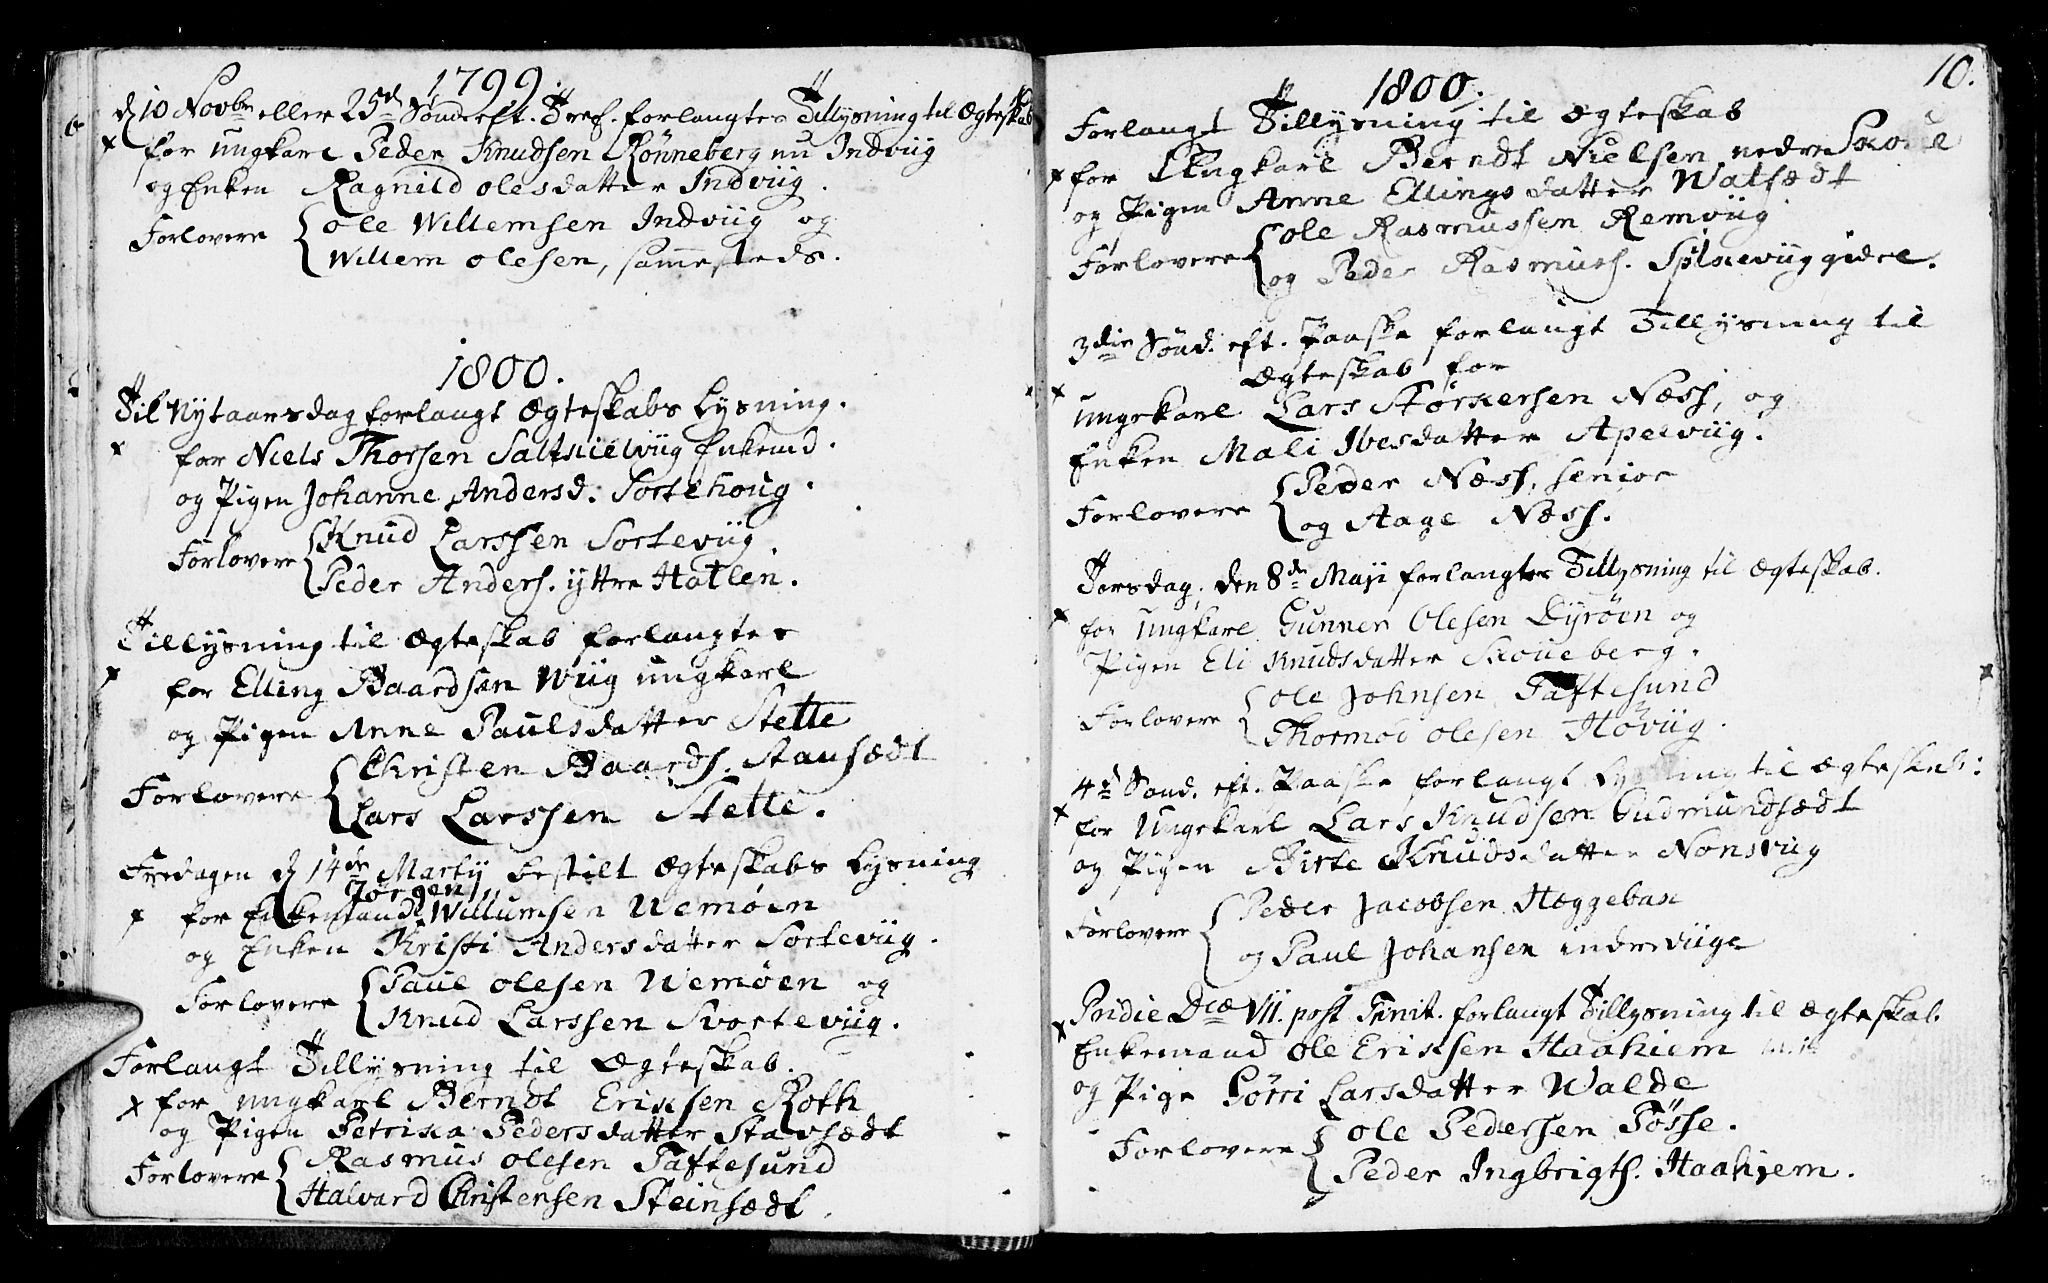 1799.
d 10 Novbr eller 25de Sønd. eft. Tref. forlangtes Tillysning til Ægteskab
for ungkarl Peder Knudsen Rønneberg nu Indviig
og Enken Ragnild Olesdatter Indviig.
Forlovere Ole Willemsen Indviig og
Willem Olesen, sammesteds.
1800.
Til Nytaarsdag forlangt Ægteskabs Lysning.
for Niels Thorsen Saltkielviig Enkemd.
og Pigen Johanne Andersd. Sortehoug.
Forlovere Knud Larssen Sorteviig.
Peder Anders. yttre Hatlen.
Tillysning til Ægteskab forlangtes
for Elling Baardsen Wiig ungkarl
og Pigen Anne Paulsdatter Stette
Forlovere Christen Baards. Stausædt
Lars Larssen Stette.
Fredagen d 14de Martij bestilt Ægteskabs Lysning
Jørgen
for Enkemand Willumsen Uemøen
og Enken Kristi Andersdatter Sorteviig.
Forlovere Paul Olesen Wemøen og
Knud Larssen Svorteviig.
Forlangt Tillysning til Ægteskab.
for ungkarl Berndt Erixsen Roth
og Pigen Petrixa Pedersdatter Stavsædt
Forlovere Rasmus Olesen Taftesund
Halvard Christensen Steinsædt.
10.
1800.
Forlangt Tillysning til Ægteskab
for Ungkarl Berndt Nielsen nedre Skoue
og Pigen Anne Ellingsdatter Watsædt
Forlovere Ole Rasmussen Remviig
og Peder Rasmuss. Spilxeviig giære.
3die Sønd. eft. Paaske forlangt Tillysning til
Ægteskab for
ungekarl Lars Størkersen Næss, og
Enken Mali Ibesdatter Apelviig.
Forlovere Peder Næss, senior
og Aage Næss.
Torsdag, den 8de Maji forlangtes Tillysning til Ægteskab.
for ungkarl Gunner Olesen Dyrøen og
Pigen Eli Knudsdatter Skoueberg.
Forlovere Ole Johnsen Taftesund
Thormod Olesen Høviig.
4de Sønd. eft. Paaske forlangt Lysning til Ægteskab:
for Ungekarl Lars Knudsen Gudmundsædt
og Pigen Birte Knudsdatter Nonsviig
Forlovere Peder Jacobsen Hæggebax
og Paul Johansen indreviige
Pridie Dcæ VII. post Trinit. forlangt Tillysning til Ægteskab.
Enkemand Ole Erixsen Haahiem
og Pige Gørri Larsdatter Walde
Forlovere Ole Pedersen Tøsse.
Peder Ingbrigts. Haahjem.